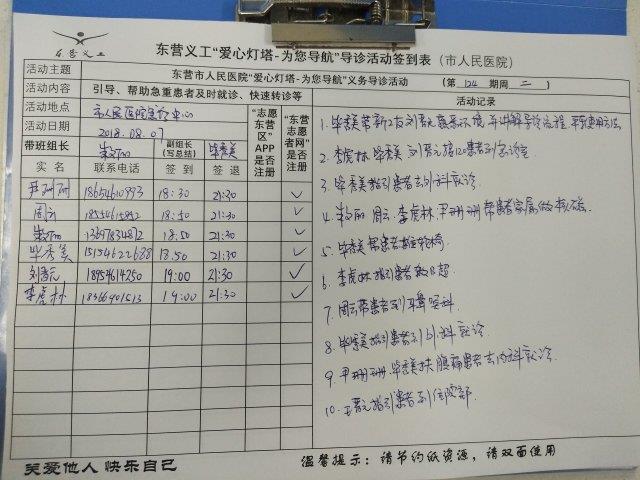 东营义工
东营义工“爱心灯塔-为您导航”导诊活动签到表（市人民医院）
活动主题 东营市人民医院“爱心灯塔-为您导航”义务导诊活动 （第 124 期周 二 ）
活动内容 引导、帮助急重患者及时就诊、快速转诊等 活动记录
活动地点 市人民医院急诊中心
活动日期 2018.08.07
带班组长 副组长（写总结） 毕秀美
“志愿东营区”APP是否注册
“东营志愿者网”是否注册
实名 联系电话 签到 签退
尹珊珊 18654610993 18:30 21:30 ✓
周云 18:50 21:30 ✓
13697834812 18:50 21:30 ✓
毕秀美 15154622688 18:50 21:30 ✓
刘春元 18954614250 19:00 21:30 ✓
李虎林 18366901513 19:00 21:30 ✓
2. 李虎林 毕秀美
3. 毕秀美指引患者去外科就诊
4. 周云 李虎林 尹珊珊帮患者家属做核磁
5. 毕秀美帮患者推轮椅
6. 李虎林指引患者做B超
7. 周云带患者到耳鼻喉科
8. 毕秀美指引患者到外科就诊
9. 尹珊珊 毕秀美扶腹痛患者去内科就诊
10. 指引患者到住院部
关爱他人 快乐自己
温馨提示：请节约纸资源，请双面使用